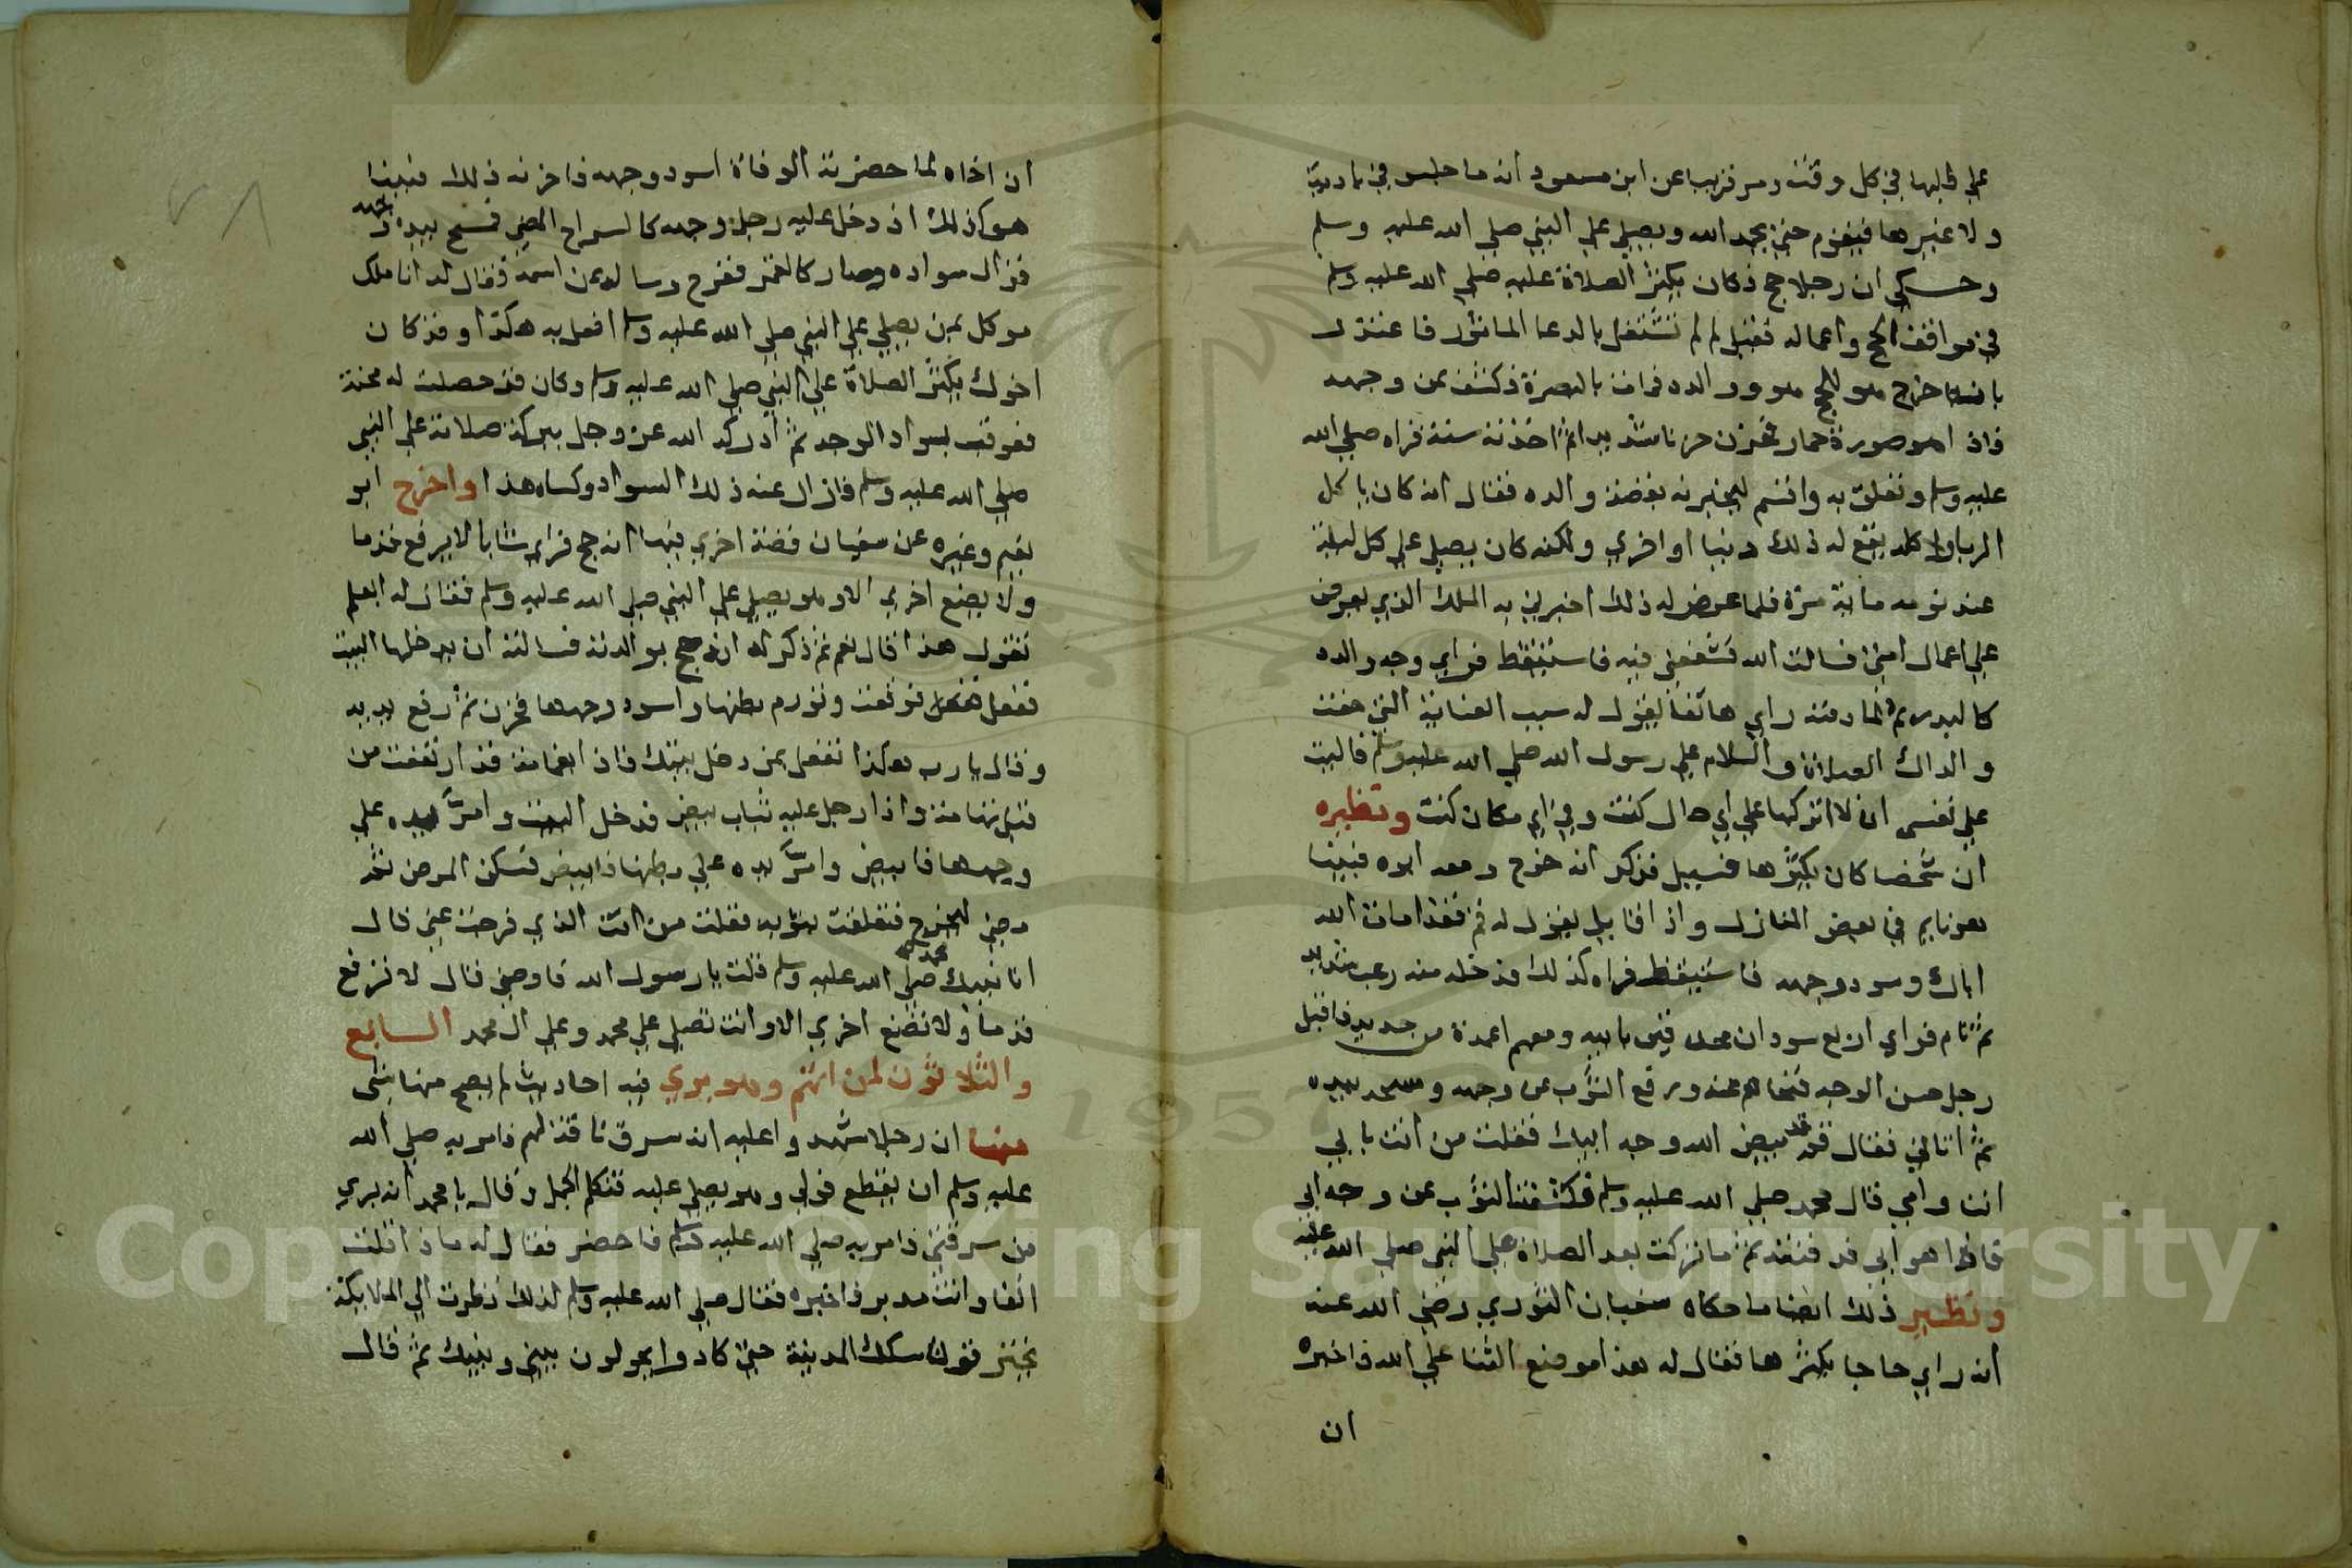 علي قالبها في كل وقت ومر قريبا عن ابن مسعود انه ما جلس في مادبة
ولا غيرها فيقوم حتي يحمد الله ويصلي علي النبي صلي الله عليه وسلم
وحسكي ان رجلا حج فكان يكثر الصلاة عليه صلي الله عليه وسلم
في مواقف الحج واعماله فقيل له لم لم تشتغل بالدعا الماثور فاعتذر
بانه خرج للحج هو ووالده فمات بالبصرة فكشف عن وجهه
فاذا هو صورة حمار فحزن حزنا شديدا ثم اخذته سنة فراه صلي الله
عليه وسلم وتعلق به واقسم ليخبرنه بقصة والده فقال انه كان ياكل
الربا واكله يقع له ذلك دنيا او اخري ولكنه كان يصلي علي كل ليلة
عند نومه ماية مرة فلما عرض له ذلك اخبرني به الملك الذي يعرض
علي اعمال امتي فسالت الله فشفعني فيه فاستيقظ فراي وجه والده
كالبدر ثم لما دفنه راي هاتفا يقول له سبب العناية التي حفت
والدك الصلاة والسلام علي رسول الله صلي الله عليه وسلم فاليت
علي نفسي ان لا اتركها علي اي حال كنت وفي اي مكان كنت ونظيره
ان شخصا كان يكثرها فسيل فذكر انه خرج ومعه ابوه فبينا
هو نايم في بعض المنازل واذا قايل يقول له قم فقد امات الله
اباك وسود وجهه فاستيقظ فراه كذلك فدخله منه رعب شديد
ثم نام فراي اربع سودان محدقين بابيه ومعهم اعمدة من حديد فاقبل
رجل حسن الوجه فنحاهم عنه ورفع الثوب عن وجهه ومسحه بيده
ثم اتاني فقال قم قد بيض الله وجه ابيك فقلت من انت بابي
انت وامي قال محمد صلي الله عليه وسلم فكشفت الثوب عن وجه ابي
فاذا هو ابيض فدفنته ثم ما تركت بعد الصلاة علي النبي صلي الله عليه
ونظير ذلك ايضا ما حكاه سفيان الثوري رضي الله عنه
انه راي حاجا يكثرها فقال له هذا موضع الثنا علي الله فاخبره
ان
ان اخاه لما حضرته الوفاة اسود وجهه فاحزنه ذلك فبينا
هو كذلك اذ دخل عليه رجل وجهه كالسراج المضي فمسح بيده وجهه
فزال سواده وصار كالقمر ففرح وساله عن اسمه فقال له انا ملك
موكل بمن يصلي علي النبي صلي الله عليه وسلم افعل به هكذا وقد كان
اخوك يكثر الصلاة علي النبي صلي الله عليه وسلم وكان قد حصلت له محنة
فعوقب بسواد الوجه ثم ادركه الله عز وجل ببركة صلاته علي النبي
صلي الله عليه وسلم فازال عنه ذلك السواد وكساه هذا واخرج ابو
نعيم وغيره عن سفيان قصة اخري فيها انه حج فراي شابا لا يرفع قدما
ولا يضع اخري الا وهو يصلي علي النبي صلي الله عليه وسلم فقال له ابعلم
تقول هذا قال نعم ثم ذكر له انه حج بوالدته فسالته ان يدخلها البيت
ففعل فوقعت وتورم بطنها واسود وجهها فحزن ثم رفع يديه
وقال يا رب هكذا تفعل بمن دخل بيتك فاذا بغمامة قد ارتفعت من
قبل تهامة واذا رجل عليه ثياب بيض فدخل البيت وامرّ يده علي
وجهها فابيض وامرّ يده علي بطنها فابيض فسكن المرض ثم
مضي ليخرج فتعلقت بثوبه فقلت من انت الذي فرجت عني قال
انا نبيك محمد صلي الله عليه وسلم قلت يا رسول الله فاوصني قال لا ترفع
قدما ولا تضع اخري الا وانت تصلي علي محمد وعلي ال محمد السابع
والثلاثون لمن اتهم وهو بري فيه احاديث لم يصح منها شي
منها ان رجلا شهدوا عليه انه سرق ناقة لهم فامر به صلي الله
عليه وسلم ان يقطع فولي وهو يصلي عليه فتكلم الجمل وقال يا محمد انه بري
من سرقتي فامر به صلي الله عليه وسلم فاحضر فقال له ماذا قلت
انفا وانت مدبر فاخبره فقال صلي الله عليه وسلم لذلك نظرت الي الملايكة
يخترقون سكك المدينة حتي كادوا يحولون بيني وبينك ثم قال
Copyright © King Saud University
1957